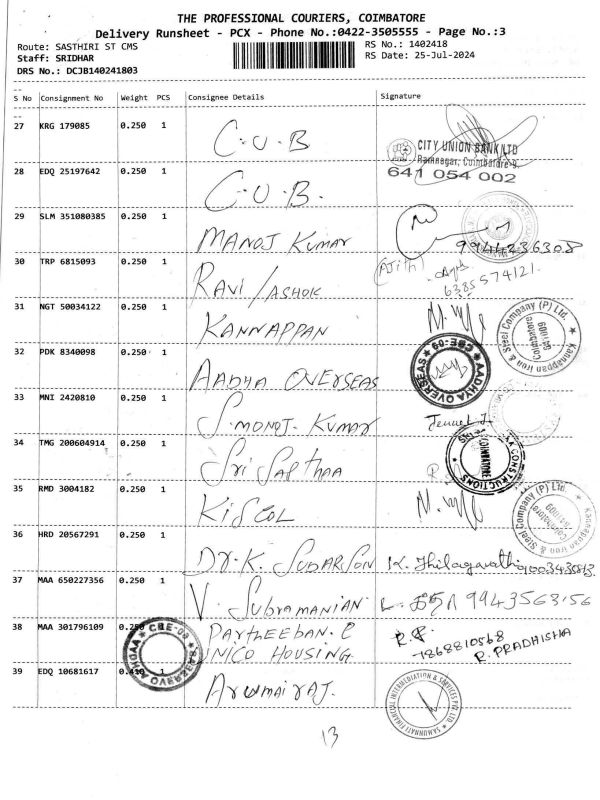 THE PROFESSIONAL COURIERS, COIMBATORE
Delivery Runsheet - PCX - Phone No.:0422-3505555 - Page No.:3
Route: SASTHIRI ST CMS
RS No.: 1402418
Staff: SRIDHAR
RS Date: 25-Jul-2024
DRS No.: DCJB140241803
S No Consignment No Weight PCS Consignee Details Signature
27 KRG 179085 0.250 1 C.U.B
CITY UNION BANK LTD
Ramnagar, Coimbatore-9.
641 054 002
28 EDQ 25197642 0.250 1 C.U.B.
29 SLM 351080385 0.250 1 MANOJ KUMAR 9944236308
30 TRP 6815093 0.250 1 RAVI / ASHOK (Ajith)
6385574121.
31 NGT 50034122 0.250 1 KANNAPPAN
Kannappan Iron & Steel Company (P) Ltd.
Coimbatore
641 009
32 PDK 8340098 0.250 1 AADHYA OVERSEAS
AADHYA OVERSEAS CBE-09
33 MNI 2420810 0.250 1 S. MONOJ. KUMAR
34 TMG 200604914 0.250 1 Sri SAPTHAA
CONSTRUCTIONS
COIMBATORE
35 RMD 3004182 0.250 1 KISCOL
Kannappan Iron & Steel Company (P) Ltd.
Coimbatore
641 009
36 HRD 20567291 0.250 1 DR. K. SUDARSON K. Thilagavathi
37 MAA 650227356 0.250 1 V. SUBRAMANIAN 9943563156
38 MAA 301796109 0.250 1 PARTHEEBAN. C
UNICO HOUSING.
7868810568
R. PRADHISHA
AADHYA OVERSEAS CBE-09
39 EDQ 10681617 0.410 1 ARUMAIRAJ.
SAMUNNATI FINANCIAL INTERMEDIATION & SERVICES PVT. LTD
13